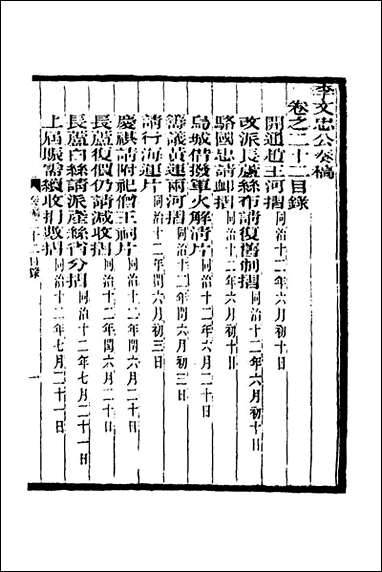 李文忠公奏稿
卷之二十二目錄
開通趙王河摺同治十二年六月初十日
改派長蘆絲布請復舊制摺同治十二年六月初十日
駱國忠請卹摺同治十二年六月初十日
烏城借撥軍火解淸片同治十二年六月二十日
籌議黃運兩河摺同治十二年閏六月初三日
請行海運片同治十二年閏六月初三日
慶祺請附祀僧王祠片同治十二年閏六月二十日
長蘆復價仍請減收摺同治十二年閏六月二十日
長蘆白絲請派產絲省分摺同治十二年七月二十一日
上屆賑需續收捐數摺同治十二年七月二十一日
奏稿二十二目錄
一